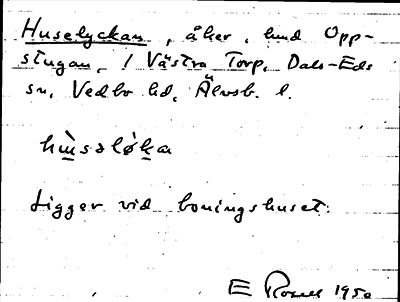 Huselyckan, åker, hmd Opp-
stugan, 1 Västra Torp, Dals-Eds
sn, Vedbo hd, Älvsb. l.
hùsəlø̀ka
Ligger vid boningshuset.
E 1950